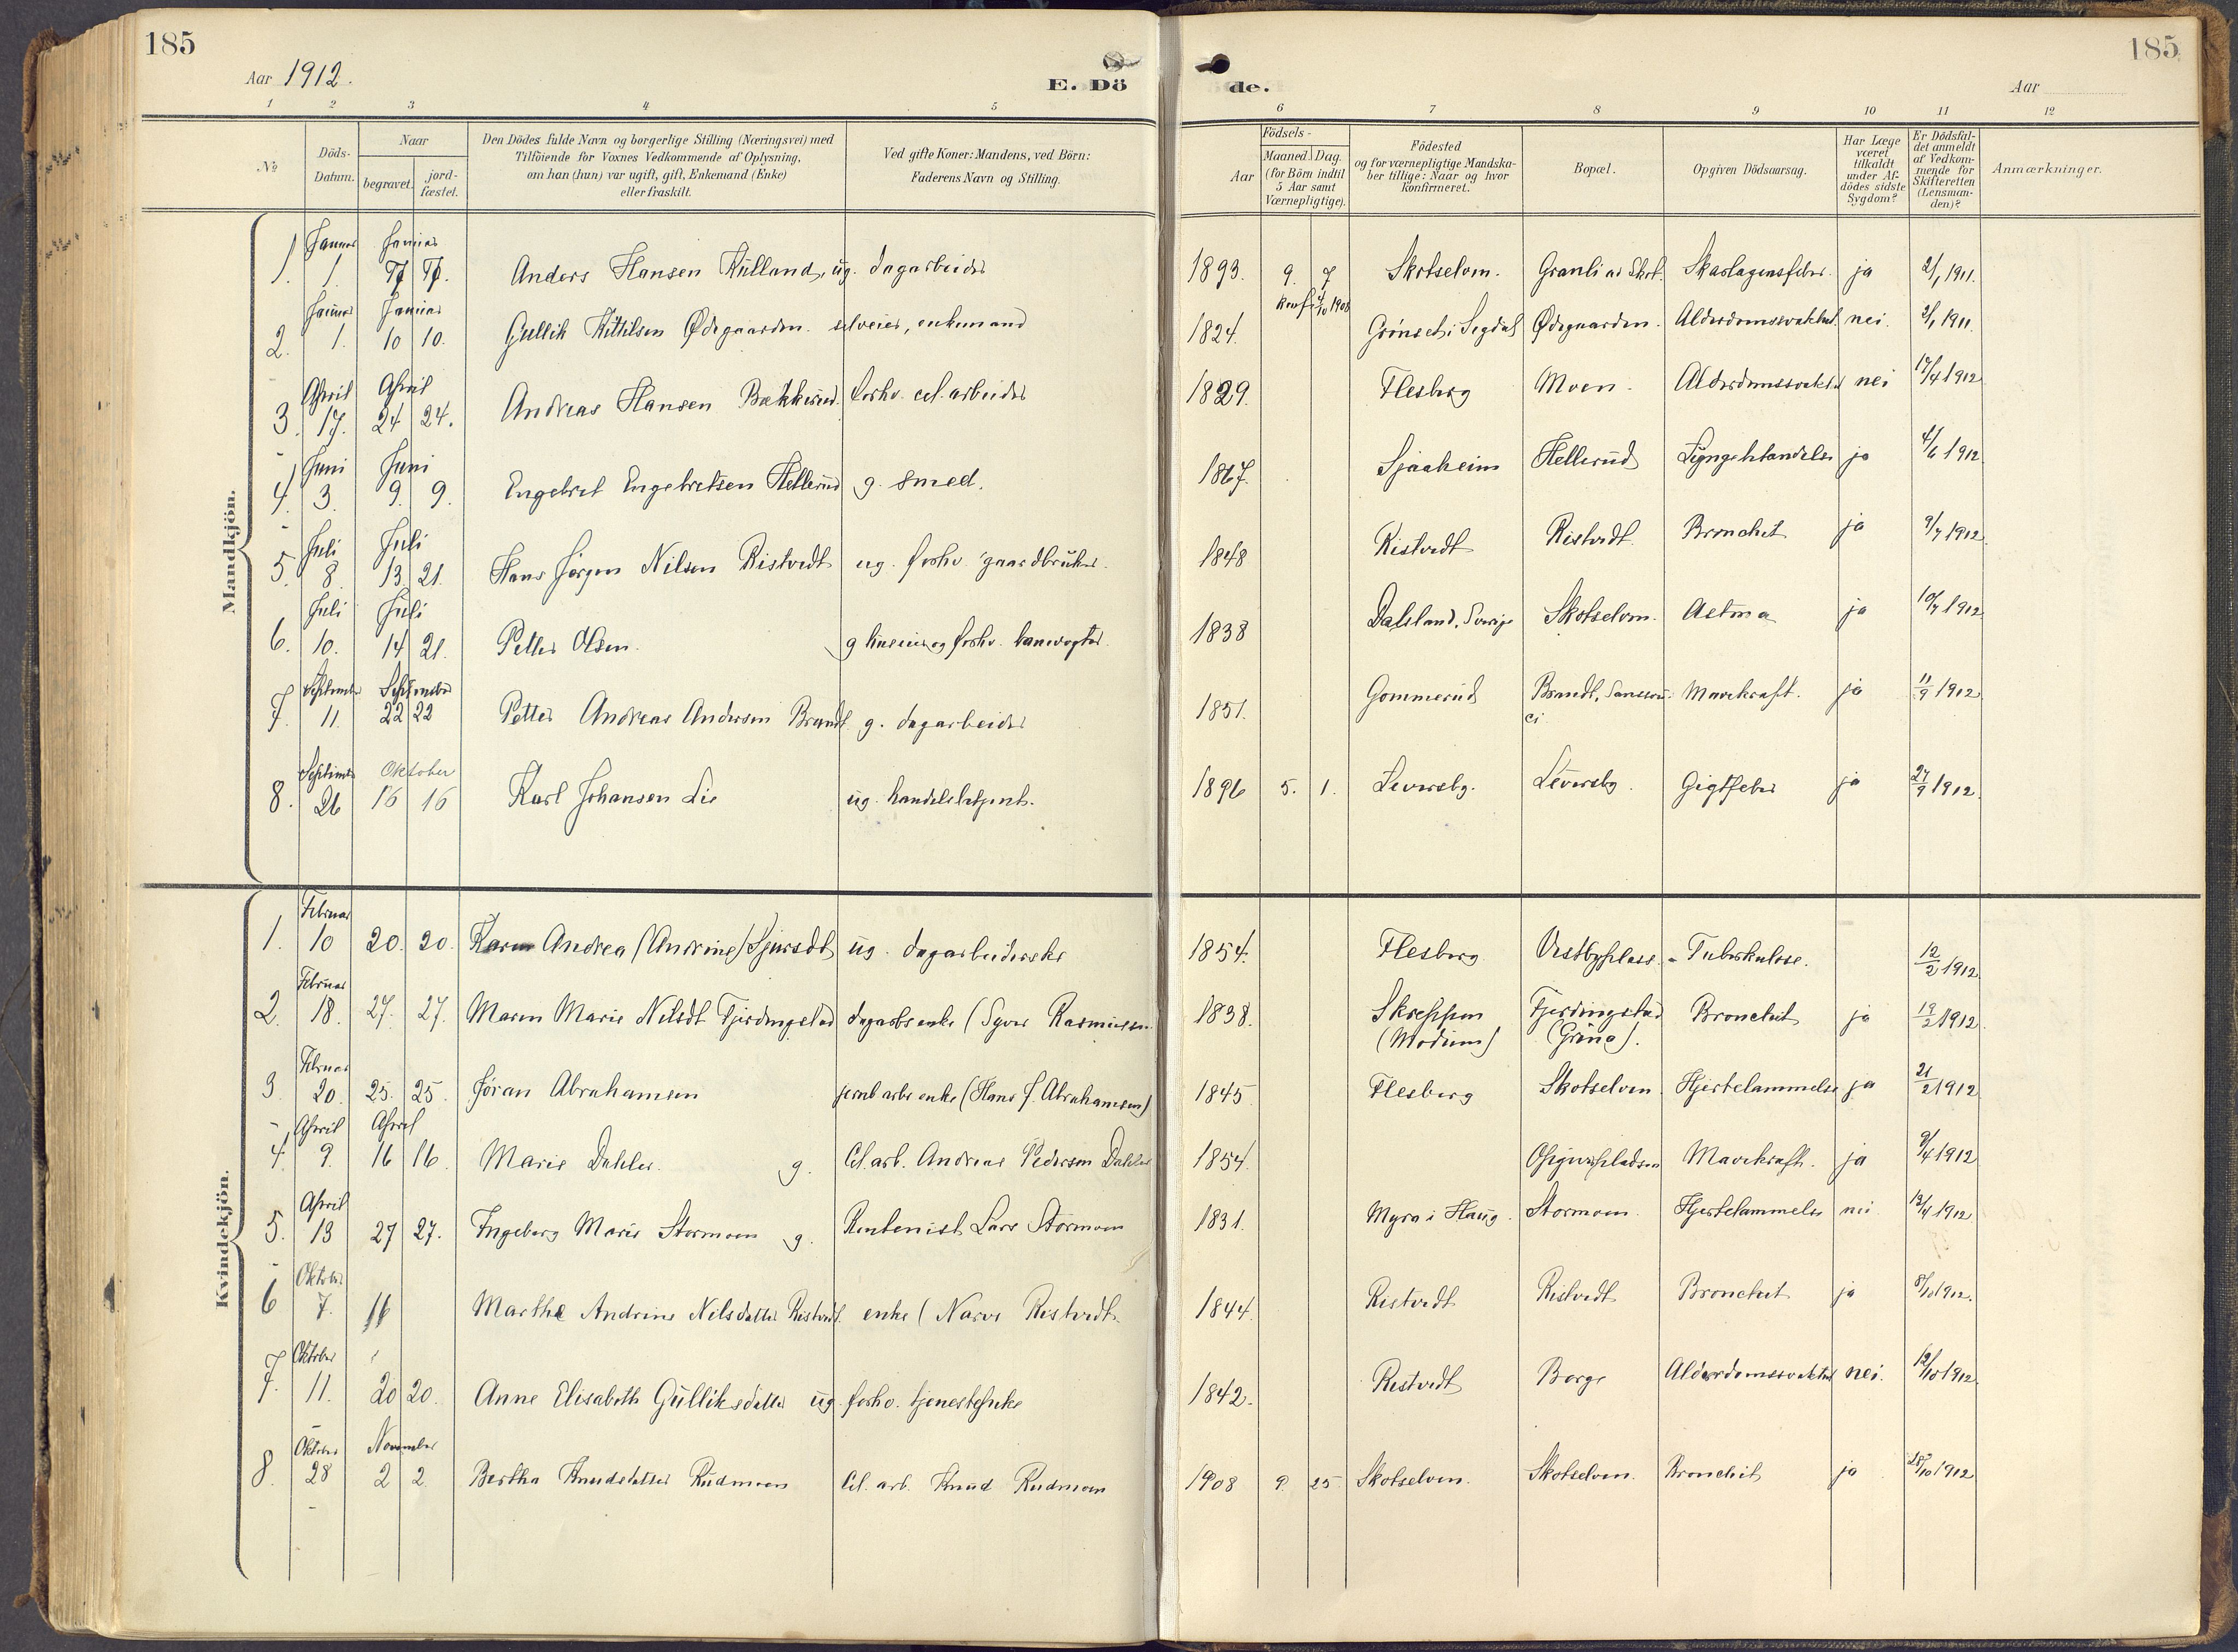 185
185
Aar 1912.
E. Dö
de.
Aar
1 2 3 4 5 6 7 8 9 10 11 12
No
Döds-Datum.
Naar
begravet.
jord-fæstet.
Den Dödes fulde Navn og borgerlige Stilling (Næringsvei) med
Tilföiende for Voxnes Vedkommende af Oplysning,
om han (hun) var ugift, gift, Enkemand (Enke)
eller fraskilt.
Ved gifte Koner: Mandens, ved Börn:
Faderens Navn og Stilling.
Födsels-
Aar
Maaned. Dag.
(for Börn indtil
5 Aar samt
Værnepligtige).
Födested
og for værnepligtige Mandska-
ber tillige: Naar og hvor
konfirmeret.
Bopæl.
Opgiven Dödsaarsag.
Har Læge
været
tilkaldt
under Af-
dödes sidste
Sygdom?
Er Dödsfal-
det anmeldt
af Vedkom-
mende for
Skifteretten
(Lensman-
den)?
Anmærkninger.
Mandkjön.
Januar Januar
1. 1. Anders Hansen Külland, ug. dagarbeider 1893. 9. 7 Skotselven. Granli av Skot. Skarlagensfeber ja 2/1 1911.
konf 4/10 1908
Januar Januar
2. 1. 10 10. Gullik Kittilsen Ødegaarden. selveier, enkemand 1824. Grønset i Sigdal Ødegaarden. Alderdomssvakhet. nei. 2/1 1911.
April April
3. 17. 24 24. Andreas Hansen Bækkerud. forhv. cel. arbeider 1829. Flesberg Moen. Alderdomssvakhet nei 17/4 1912
Juni Juni
4. 3. 9. 9. Engebret Engebretsen Hellerud g. smed. 1867. Sjaaheim Hellerud ja 4/6 1912
Juli Juli
5. 8. 13. 21. Hans Jørgen Nilsen Ristvedt ug. forhv. gaardbruker. 1848 Ristvedt Ristvedt Bronchit ja 9/7 1912.
Juli Juli
6. 10. 14 21. Petter Olsen. g huseier og forhv. banevogter. 1838 Dalsland, Sverige Skotselven. Astma ja 10/7 1912
September September
7. 11. 22 22 Petter Andreas Andersen Brandt g. dagarbeider 1851. Gommerud Brandt, Mavekræft. ja 11/9 1912
September Oktober
8. 26 16 16 Karl Johansen Lie ug. handelsbetjent. 1896 5. 1. Leversby. Leversby. Gigtfeber ja 27/9 1912.
Kvindekjön.
Februar
1. 10 20. 20. Karen Andrea (Andrine) Sjursdt ug. dagarbeiderske 1854. Flesberg Vestbyplass. Tuberkulose. 12/2 1912
Februar
2. 18. 27. 27. Maren Marie Nilsdt Fjerdingstad dagarbs enke (Syver Rasmussen 1838. Skreppen Fjerdingstad Bronchit ja 19/2 1912
(Modum)
Februar
3 20. 25. 25. Jöran Abrahamsen jernb arbs enke (Hans J. Abrahamsen) 1845. Flesberg Skotselven. Hjertelammelse ja 21/2 1912
April April
4. 9. 16 16. Marie Dahler. g. Cel. arb. Andreas Pedersen Dahler 1854. Mavekræft. ja 9/4 1912
April
5. 13 27 27. Ingeborg Marie Stormoen g. Rentenist Lars Stormoen 1831. Myra i Haug. Stormoen. Hjertelammelse nei 13/4 1912
Oktober
6 7. 11 Marthe Andrine Nilsdatter Ristvedt. enke (Narve Ristvedt. 1844. Ristvedt Ristvedt Bronchit ja 8/10 1912.
Oktober
7. 11. 20 20. Anne Elisabeth Gulliksdatter ug. forhv. tjenestepike 1842. Ristvedt Borge Alderdomssvakhet nei. 12/10 1912
Oktober November
8. 28 2 2 Bertha Knudsdatter Rudmoen Cel. arb. Knud Rudmoen 1908 9. 25. Skotselven. Skotselven. Bronchit ja 28/10 1912